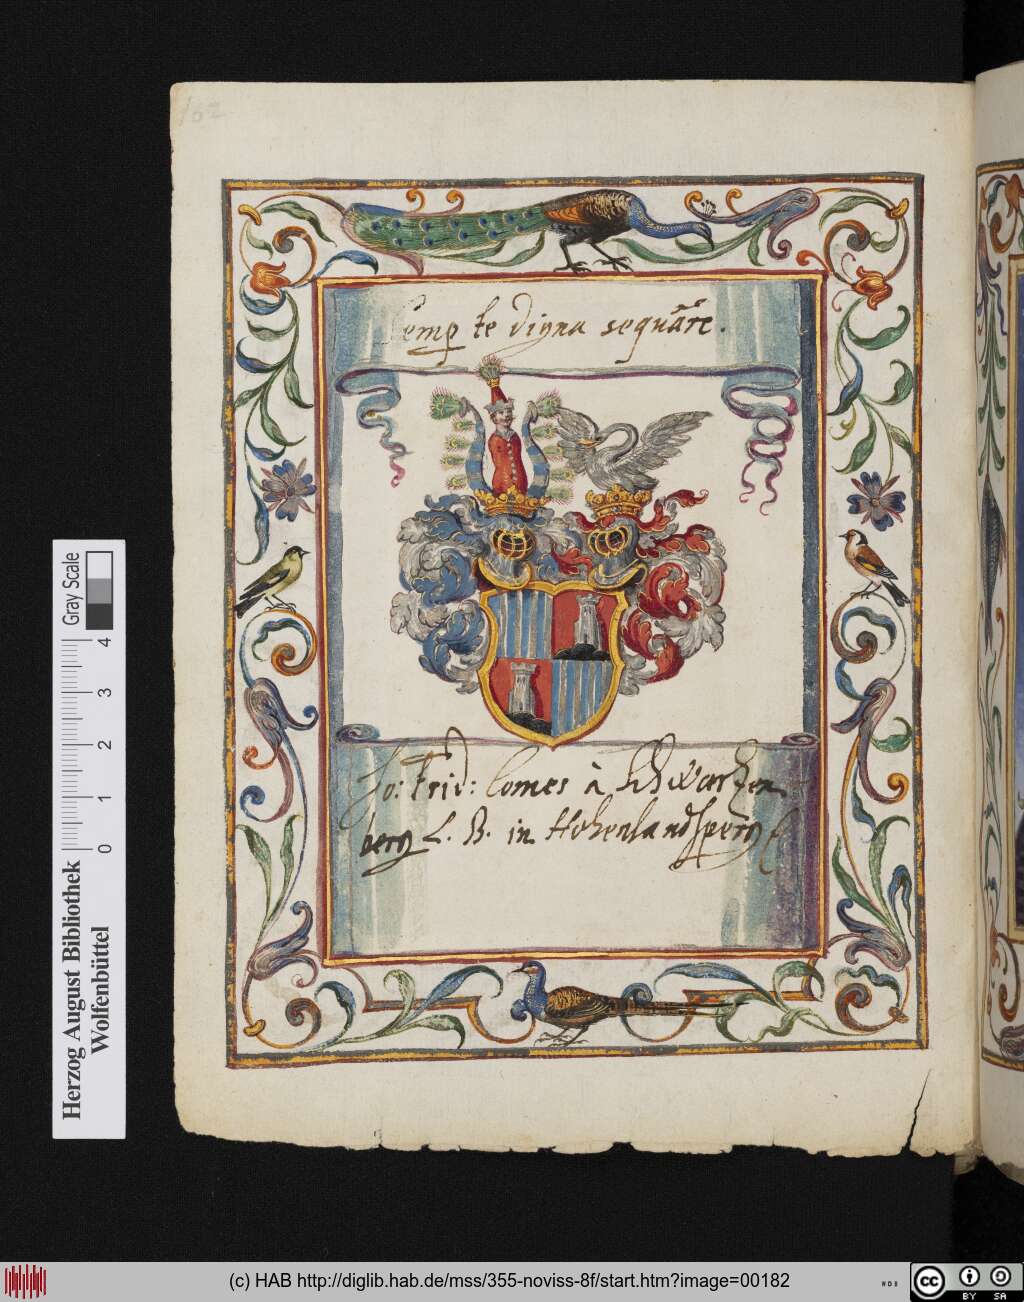 162
Semp te digna sequãre.
Jo: Frid: Comes à Schwartzen
berg L. B. in Hohenlandsperg
Gray Scale
0 1 2 3 4
Herzog August Bibliothek
Wolfenbüttel
(c) HAB http://diglib.hab.de/mss/355-noviss-8f/start.htm?image=00182
WDB
cc BY SA